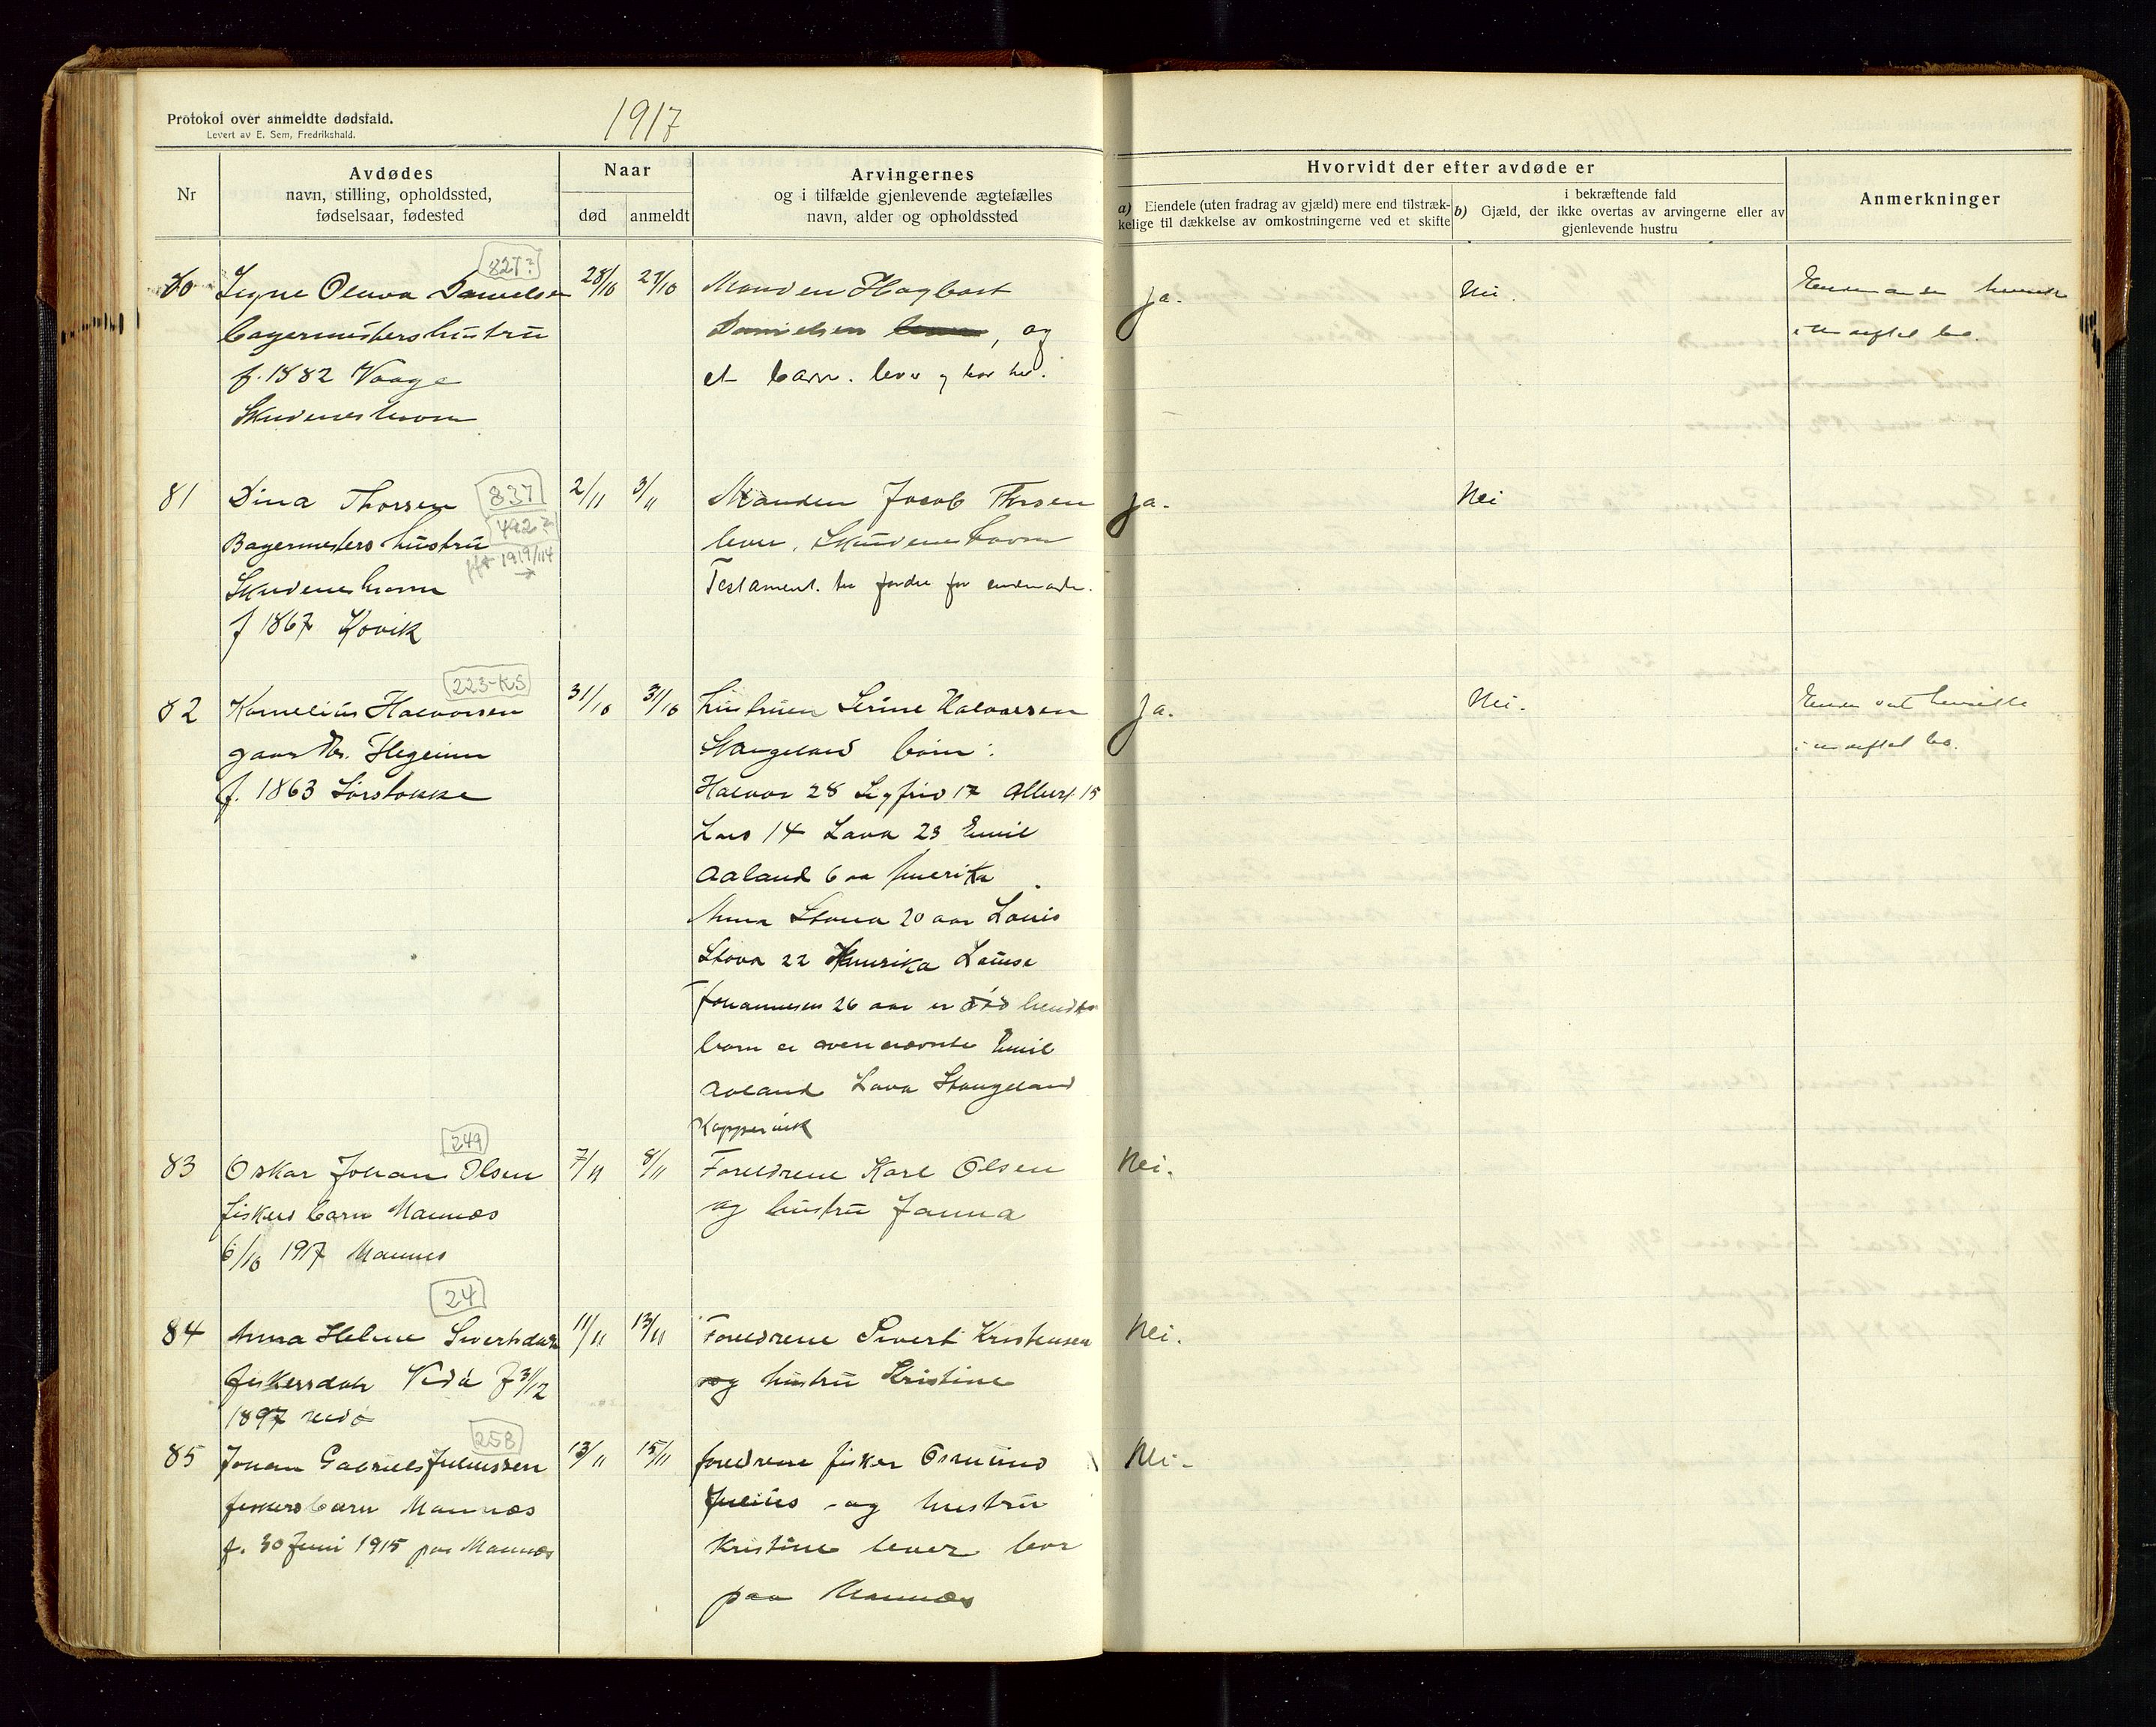 Protokol over anmeldte dødsfald.
Levert av E. Sem, Fredrikshald.
1917
Nr
Avdødes
navn, stilling, opholdssted,
fødselsaar, fødested
Naar
død
anmeldt
Arvingernes
og i tilfælde gjenlevende ægtefælles
navn, alder og opholdssted
Hvorvidt der efter avdøde er
a) Eiendele (uten fradrag av gjæld) mere end tilstræk-
kelige til dækkelse av omkostningerne ved et skifte
i bekræftende fald
b) Gjæld, der ikke overtas av arvingerne eller av
gjenlevende hustru
Anmerkninger
80
827?
Signe Olava Danielsen
bagermesters hustru
f. 1882 Vaage
Skudeneshavn
28/10
29/10
Manden Hagbart
Danielsen, og
et barn. lever og bor her.
Ja.
Nei.
i uskiftet bo.
81
837
492?
1919/114
Dina Thorsen
Bagermesters hustru
Skudeneshavn
f 1867 Hovik
2/11
3/11
Manden Jacob Thorsen
lever, Skudeneshavn
Testament.
Ja.
Nei
82
223-KS
Kornelius Halvorsen
gaardbr. Hegeim
f. 1863 Sørstokke
31/10
31/10
hustruen Serine Halvorsen
Stangeland børn:
Halvor 28 Sigfrid 17 Albert 15
Lars 14 Lava 23 Emil
Aaland 6 aa Amerika
Anna Stava 20 aar Louis
Stova 22 Amerika Louise
Johannesen 26 aar er død hendes
barn er ovennævnte Emil
Aaland Lava Stangeland
Koppervik
Ja.
Nei.
i uskiftet bo.
83
249
Oskar Johan Olsen
fiskers barn Mannæs
6/10 1917 Mannes
7/11
8/11
Foreldrene Karl Olsen
og hustru Janna
Nei.
84
24
Anna Helene Sivertsdatter
fiskersdatr Vedø f 31/12
1897 vedø
11/11
13/11
Foreldrene Sivert Kristensen
og hustru Kristine
Nei.
85
258
Johan Gabriels Juliussen
fiskers barn Mannæs
f. 30 Juni 1915 paa Mannæs
13/11
15/11
foreldrene fisker Osmund
Julius og hustru
Kristine lever bor
paa Mannæs
Nei.